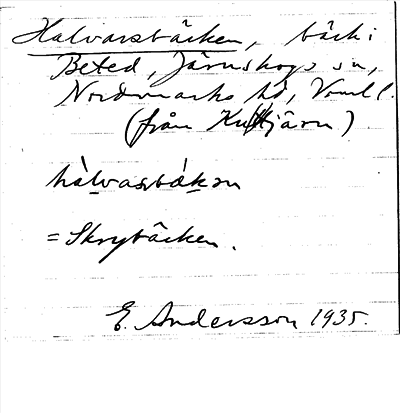 Halvarsbäcken, bäck i
Beted, Järnskogs sn,
Nordmarks hd, Vrml.
(från Kuftjärn)
hàlvasbäkən
= Skrybäcken.
E. Andersson 1935.